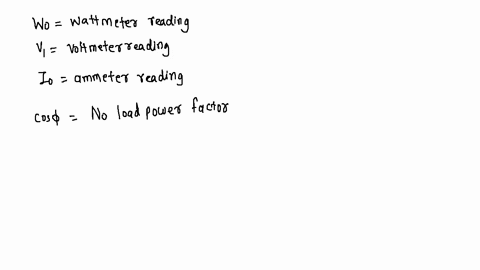 Wo = wattmeter reading
V₁ = voltmeter reading
Io = ammeter reading
cosϕ = No load power factor